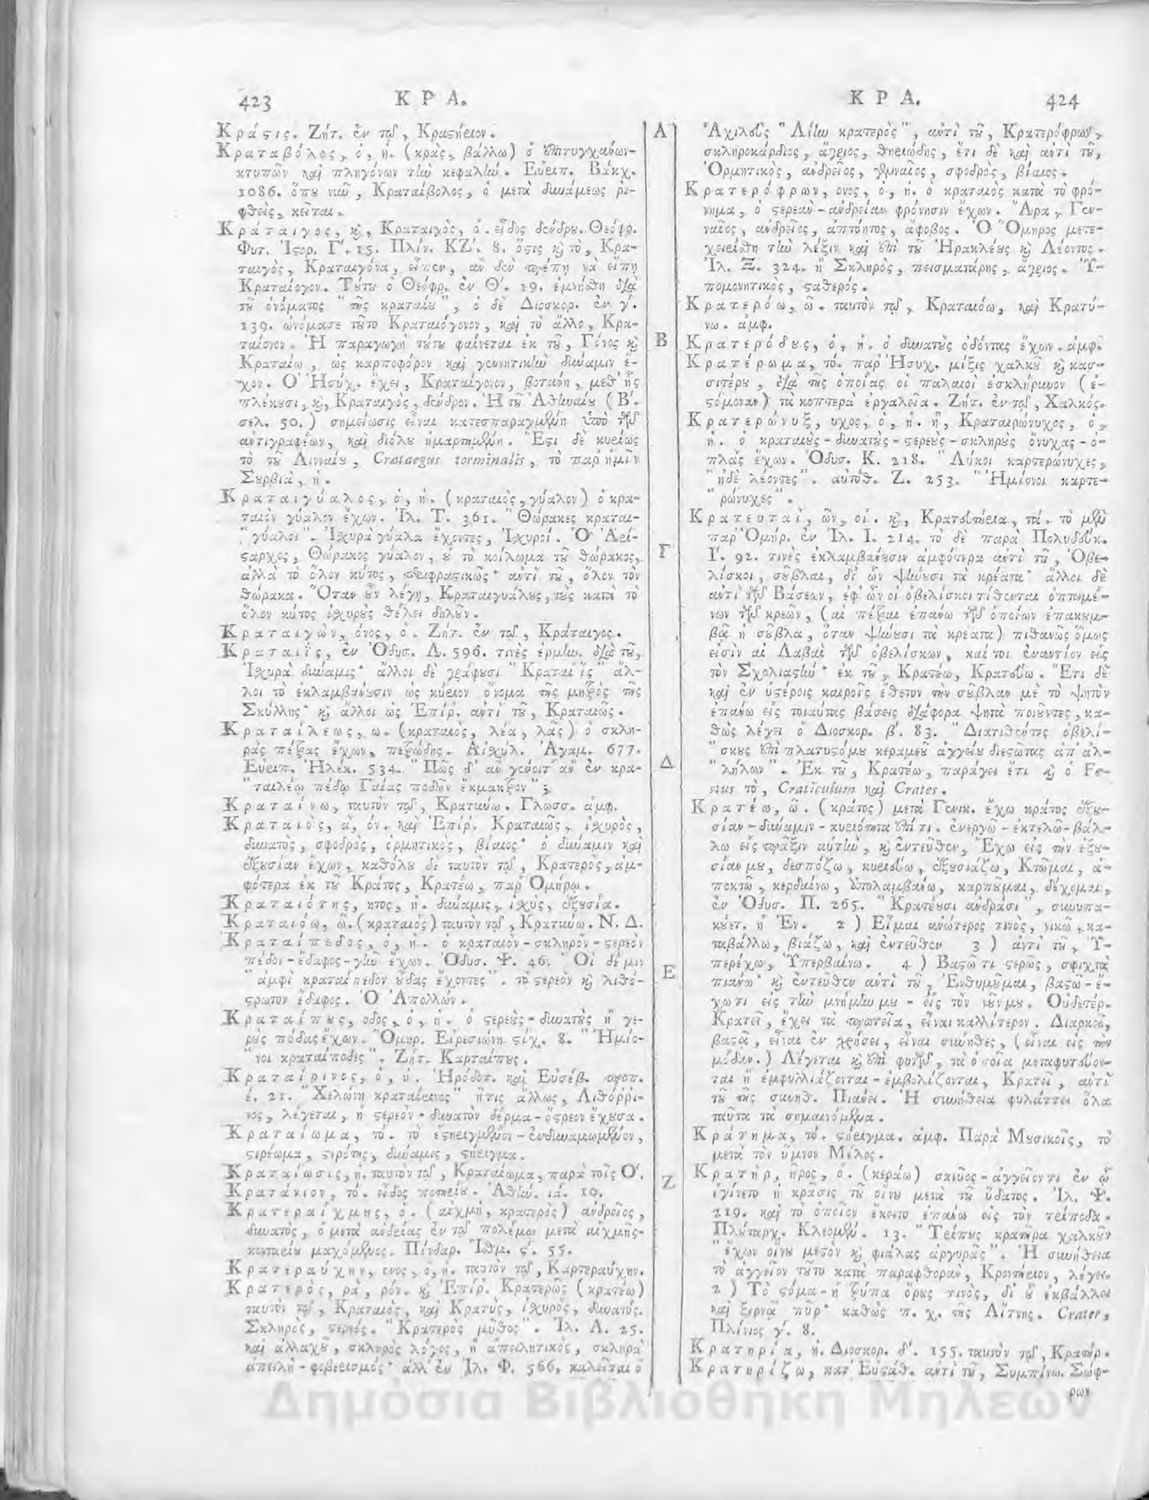 423 Κ Ρ Α.
Κράσις. Ζήτ. ἐν τῷ, Κραστήριον.
Κραταβόλος, ὁ, ἡ. (κρὰς, βάλλω) ὁ
κτυπῶν καὶ πληγόνων τὴν κεφαλήν. Εὐριπ. Βάκχ.
1086. ὅπου νῦν, Κραταίβολος, ὁ μετὰ δυνάμεως ῥι-
φθεὶς, κεῖται.
Κράταιγος, καὶ, Κραταιγὸς, ὁ. εἶδος δένδρου. Θεόφρ.
Φυτ. Ἱστορ. Γ΄. 15. Πλίν. ΚΖ΄. 8. ὅστις καὶ τὸ, Κρα-
ταιγὸς, Κραταιγόνα, εἶπεν, ἂν δὲν πρέπῃ νὰ εἴπῃ
Κραταίογον. Τούτου ὁ Θεόφρ. ἐν Θ΄. 19. ἐμνήσθη διὰ
τοῦ ὀνόματος " τῆς κραταιοῦ ", ὁ δὲ Διοσκορ. ἐν γ΄.
139. ὠνόμασε τοῦτο Κραταιόγονον, καὶ τὸ ἄλλο, Κρα-
ταίονον. Ἡ παραγωγὴ τούτου φαίνεται ἐκ τοῦ, Γένος καὶ
Κραταιῶ, ὡς καρποφόρον καὶ γεννητικὴν δύναμιν ἔ-
χον. Ὁ Ἡσύχ. ἔχει, Κραταίγονον, βοτάνη, μεθ' ἧς
πλέκουσι, καὶ, Κραταιγὸς, δένδρον. Ἡ τοῦ Ἀθηναίου (Β΄.
σελ. 50.) σημείωσις εἶναι κατεσπαραγμένη ὑπὸ τῶν
ἀντιγραφέων, καὶ διόλου ἡμαρτημένη. Ἔστι δὲ κυρίως
τὸ τοῦ Λινναίου, Crataegus torminalis, τὸ παρ' ἡμῖν
Σουρβιὰ, ἡ.
Κραταιγύαλος, ὁ, ἡ. (κραταιὸς, γύαλον) ὁ κρα-
ταιὸν γύαλον ἔχων. Ἰλ. Τ. 361. " Θώρακες κραται-
" γύαλοι. Ἰσχυρὰ γύαλα ἔχοντες, Ἰσχυροί. Ὁ Ἀρί-
σταρχος, Θώρακος γύαλον, οὐ τὸ κοίλωμα τοῦ θώρακος,
ἀλλὰ τὸ ὅλον κύτος, περιφραστικῶς· ἀντὶ τοῦ, ὅλον τὸν
θώρακα. Ὅταν οὖν λέγῃ, Κραταιγυάλους, τοὺς κατὰ τὸ
ὅλον κύτος ἰσχυροὺς θέλει δηλοῦν.
Κραταιγὼν, όνος, ὁ. Ζήτ. ἐν τῷ, Κράταιγος.
Κραταιῒς, ἐν Ὀδυσ. Λ. 596. τινὲς ἑρμήν. διὰ τοῦ,
Ἰσχυρὰ δύναμις· ἄλλοι δὲ γράφουσι " Κραταὶ ἲς " ἄλ-
λοι τὸ ἐκλαμβάνουσιν ὡς κύριον ὄνομα τῆς μητρὸς τῆς
Σκύλλης· καὶ ἄλλοι ὡς Ἐπίρ. ἀντὶ τοῦ, Κραταιῶς.
Κραταίλεως, ω. (κραταιὸς, λέα, λᾶς) ὁ σκλη-
ρὰς πέτρας ἔχων, πετρώδης. Αἰσχύλ. Ἀγαμ. 677.
Εὐριπ. Ἠλέκ. 534. " Πῶς δ' ἂν γένοιτ' ἂν ἐν κρα-
" ταιλέῳ πέδῳ Γαίας ποδῶν ἔκμακτρον ;
Κραταίνω, ταυτὸν τῷ, Κρατύνω. Γλωσσ. ἀμφ.
Κραταιὸς, ὰ, όν. καὶ Ἐπίρ. Κραταιῶς, ἰσχυρὸς,
δυνατὸς, σφοδρὸς, ὁρμητικὸς, βίαιος· ὁ δύναμιν καὶ
ἐξουσίαν ἔχων, καθόλου δὲ ταυτὸν τῷ, Κρατερὸς, ἀμ-
φότερα ἐκ τοῦ Κράτος, Κρατέω, παρ' Ὁμήρῳ.
Κραταιότης, ητος, ἡ. δύναμις, ἰσχὺς, ἐξουσία.
Κραταιόω, ῶ. (κραταιὸς) ταυτὸν τῷ, Κρατύνω. Ν. Δ.
Κραταίπεδος, ὁ, ἡ. ὁ κραταιὸν - σκληρὸν - στερεὸν
πέδον - ἔδαφος - γῆν ἔχων. Ὀδυσ. Ψ. 46. " Οἱ δέ μιν
" ἀμφὶ κραταίπεδον οὖδας ἔχοντες ". τὸ στερεὸν καὶ λιθό-
στρωτον ἔδαφος. Ὁ Ἀπολλών.
Κραταίπους, οδος, ὁ, ἡ. ὁ στερεοὺς - δυνατοὺς ἢ γε-
ροὺς πόδας ἔχων. Ὁμηρ. Εἰρεσιώνη στίχ. 8. " Ἡμίο-
" νοι κραταίποδες ". Ζήτ. Καρταίπους.
Κραταίρινος, ὁ, ἡ. Ἡρόδοτ. καὶ Εὐσέβ. προπ.
έ. 21. " Χελώνη κραταίρινος " ἥτις ἄλλως, Λιθόῤῥι-
νος, λέγεται, ἡ στερεὸν - δυνατὸν δέρμα - ὄστρεον ἔχουσα.
Κραταίωμα, τό. τὸ ἐστηριγμένον - ἐνδυναμωμένον,
στερέωμα, στερότης, δύναμις, στήριγμα.
Κραταίωσις, ἡ. ταυτὸν τῷ, Κραταίωμα, παρὰ τοῖς Ο΄.
Κρατάνιον, τό. εἶδος ποτηρίου. Ἀθήν. ιά. 10.
Κραταίχμης, ὁ. (αἰχμὴ, κρατερὸς) ἀνδρεῖος,
δυνατὸς, ὁ μετὰ ἀνδρείας ἐν τῷ πολέμῳ μετὰ αἰχμῆς -
κονταρίου μαχόμενος. Πίνδαρ. Ἰσθμ. ς΄. 55.
Κρατεραύχην, ενος, ὁ, ἡ. ταυτὸν τῷ, Καρτεραύχην.
Κρατερὸς, ρὰ, ρόν. καὶ Ἐπίρ. Κρατερῶς (κρατέω)
ταυτὸν τῷ, Κραταιὸς, καὶ Κρατὺς, ἰσχυρὸς, δυνατός.
Σκληρὸς, στερεός. " Κρατερὸς μῦθος ". Ἰλ. Α. 25.
καὶ ἀλλαχοῦ, σκληρὸς λόγος, ἢ ἀπειλητικὸς, σκληρὰ
ἀπειλὴ - φοβερισμός· ἀλλ' ἐν Ἰλ. Φ. 566. καλεῖται ὁ
Α
Β
Γ
Δ
Ε
Ζ
Κ Ρ Α. 424
Ἀχιλλεὺς " Λίην κρατερὸς ", ἀντὶ τοῦ, Κρατερόφρων,
σκληροκάρδιος, ἄγριος, θηριώδης, ἔτι δὲ καὶ ἀντὶ τοῦ,
Ὁρμητικὸς, ἀνδρεῖος, γενναῖος, σφοδρὸς, βίαιος.
Κρατερόφρων, ονος, ὁ, ἡ. ὁ κραταιὸς κατὰ τὸ φρό-
νημα, ὁ στερεὰν - ἀνδρείαν φρόνησιν ἔχων. Ἄρα, Γεν-
ναῖος, ἀνδρεῖος, ἀπτόητος, ἄφοβος. Ὁ Ὅμηρος μετε-
χειρίσθη τὴν λέξιν καὶ ἐπὶ τοῦ Ἡρακλέους καὶ Λέοντος.
Ἰλ. Ξ. 324. ἢ Σκληρὸς, πεισματάρης, ἄγριος. Ὑ-
πομονητικὸς, σταθερός.
Κρατερόω, ῶ. ταυτὸν τῷ, Κραταιόω, καὶ Κρατύ-
νω. ἀμφ.
Κρατερόδους, ὁ, ἡ. ὁ δυνατοὺς ὀδόντας ἔχων. ἀμφ.
Κρατέρωμα, τό. παρ' Ἡσυχ. μίξις χαλκοῦ καὶ κασ-
σιτέρου, διὰ τῆς ὁποίας οἱ παλαιοὶ ἐσκλήρυνον (ἐ-
στόμοναν) τὰ κοπτερὰ ἐργαλεῖα. Ζήτ. ἐν τῷ, Χαλκός.
Κρατερώνυξ, υχος, ὁ, ἡ. ἢ, Κραταιρώνυχος, ὁ,
ἡ. ὁ κραταιοὺς - δυνατοὺς - στερεοὺς - σκληροὺς ὄνυχας - ὁ-
πλὰς ἔχων. Ὀδυσ. Κ. 218. " Λύκοι κρατερώνυχες,
" ἠδὲ λέοντες ". αὐτόθ. Ζ. 253. " Ἡμίονοι κρατε-
" ρώνυχες ".
Κρατευταὶ, ῶν, οἱ. καὶ, Κρατευτήρια, τά. τὸ μὲν
παρ' Ὁμήρ. ἐν Ἰλ. Ι. 214. τὸ δὲ παρὰ Πολυδεύκ.
Ι΄. 92. τινὲς ἐκλαμβάνουσιν ἀμφότερα ἀντὶ τοῦ, Ὀβε-
λίσκοι, σοῦβλαι, δι' ὧν ψήνουσι τὰ κρέατα· ἄλλοι δὲ
ἀντὶ τῶν Βάσεων, ἐφ' ὧν οἱ ὀβελίσκοι τίθενται ὀπτωμέ-
νων τῶν κρεῶν, (αἱ πέτραι ἐπάνω τῶν ὁποίων ἐπακουμ-
βᾷ ἡ σοῦβλα, ὅταν ψήνουσι τὰ κρέατα) πιθανῶς ὅμως
εἰσὶν αἱ Λαβαὶ τῶν ὀβελίσκων, καί τοι ἐναντίον εἰς
τὸν Σχολιαστήν· ἐκ τοῦ, Κρατέω, Κρατεύω. Ἔτι δὲ
καὶ ἐν ὑστέροις καιροῖς ἔθετον τὴν σοῦβλαν μὲ τὸ ψητὸν
ἐπάνω εἰς τοιαύτας βάσεις διάφορα ψητὰ ποιοῦντες, κα-
θὼς λέγει ὁ Διοσκορ. β΄. 83. " Διατιθέντες ὀβελί-
" σκους ἐπὶ πλατυστόμου κεραμεοῦ ἀγγείου διεστῶτας ἀπ' ἀλ-
" λήλων ". Ἐκ τοῦ, Κρατέω, παράγει ἔτι καὶ ὁ Fe-
stus τὸ, Craticulum καὶ Crates.
Κρατέω, ῶ. (κράτος) μετὰ Γενικ. ἔχω κράτος ἐξου-
σίαν - δύναμιν - κυριότητα ἐπί τι. ἐνεργῶ - ἐκτελῶ - βάλ-
λω εἰς πρᾶξιν αὐτὴν, καὶ ἐντεῦθεν, Ἔχω εἰς τὴν ἐξου-
σίαν μου, δεσπόζω, κυριεύω, ἐξουσιάζω, Κτῶμαι, ἀ-
ποκτῶ, κερδαίνω, ὑπολαμβάνω, καρποῦμαι, δέχομαι,
ἐν Ὀδυσ. Π. 265. " Κρατέουσι ἀνδράσι ", συνυπα-
κούετ. ἡ Ἐν. 2) Εἶμαι ἀνώτερος τινὸς, νικῶ, κα-
ταβάλλω, βιάζω, καὶ ἐντεῦθεν 3) ἀντὶ τοῦ, Ὑ-
περέχω, Ὑπερβαίνω. 4) Βαστῶ τι στερεῶς, σφιχτὰ
πιάνω· καὶ ἐντεῦθεν ἀντὶ τοῦ, Ἐνθυμοῦμαι, βαστῶ - ἔ-
χω τι εἰς τὴν μνήμην μου - εἰς τὸν νοῦν μου. Οὐδετέρ.
Κρατεῖ, ἔχει τὰ πρωτεῖα, εἶναι καλλίτερον. Διαρκεῖ,
βαστᾷ, εἶναι ἐν χρήσει, εἶναι σύνηθες, (εἶναι εἰς τὴν
μόδαν.) Λέγεται καὶ ἐπὶ φυτῶν, τὰ ὁποῖα μεταφυτεύον-
ται ἢ ἐμφυλλιάζονται - ἐμβολίζονται, Κρατεῖ, ἀντὶ
τοῦ τῆς συνηθ. Πιάνει. Ἡ συνήθεια φυλάττει ὅλα
ταῦτα τὰ σημαινόμενα.
Κράτημα, τό. στήριγμα. ἀμφ. Παρὰ Μουσικοῖς, τὸ
μετὰ τὸν ὕμνον Μέλος.
Κρατὴρ, ῆρος, ὁ. (κεράω) σκεῦος - ἀγγεῖόν τι ἐν ᾧ
ἐγίνετο ἡ κρᾶσις τοῦ οἴνου μετὰ τοῦ ὕδατος. Ἰλ. Ψ.
219. καὶ τὸ ὁποῖον ἔκειτο ἐπάνω εἰς τὸν τρίποδα.
Πλούταρχ. Κλεομέν. 13. " Τρίπους κρατῆρα χαλκοῦν
" ἔχων οἴνου μεστὸν καὶ φιάλας ἀργυρᾶς ". Ἡ συνήθεια
τὸ ἀγγεῖον τοῦτο κατὰ παραφθορὰν, Κροντήριον, λέγει.
2) Τὸ στόμα - ἡ τρύπα ὄρους τινὸς, δι' οὗ ἐκβάλλει
καὶ ξερνᾷ πῦρ· καθὼς π. χ. τῆς Αἴτνης. Crater,
Πλίνιος γ΄. 8.
Κρατηρία, ἡ. Διοσκορ. δ΄. 155. ταυτὸν τῷ, Κρατήρ.
Κρατηρίζω, κατ' Εὐστάθ. ἀντὶ τοῦ, Συμπίνω. Σώφ-
ρων
Δημόσια Βιβλιοθήκη Μηλεών